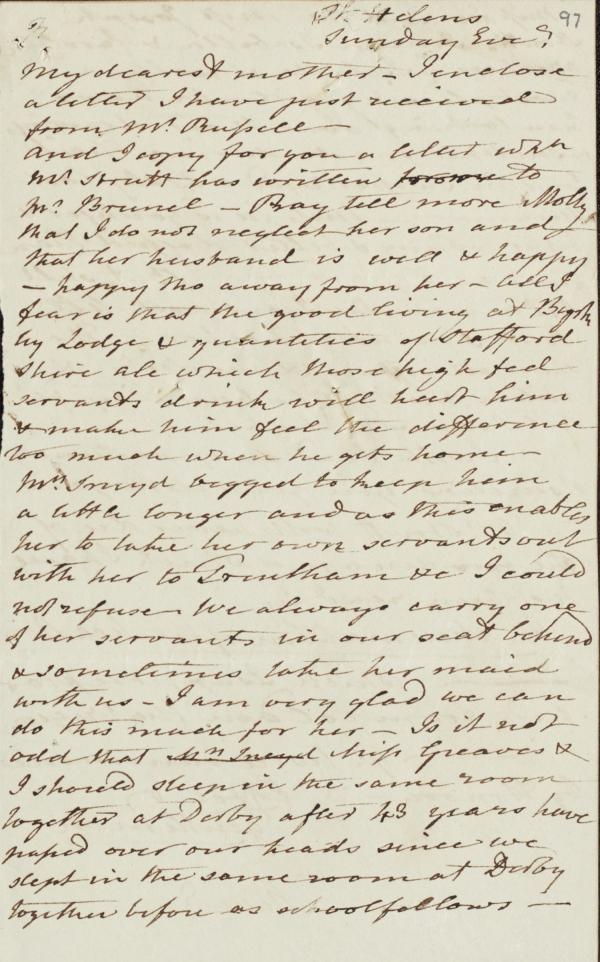 St. Helens 97
Sunday Eve.
My dearest mother – I enclose
a letter I have just received
from Mr. Russell –
And I copy for you a letter wh
Mr. Strutt has written to
Mr. Brunel – Pray tell more Molly
that I do not neglect her son and
that her husband is well & happy
– happy tho away from her – all I
fear is that the good living at Byrk
ly Lodge & quantities of Stafford
shire ale which those high fed
servants drink will hurt him
& make him feel the difference
too much when he gets home –
Mrs. Sneyd begged to keep him
a little longer and as this enables
her to take her own servants out
with her to Trentham &c I could
not refuse – We always carry one
of her servants in our seat behind
& sometimes take her maid
with us – I am very glad we can
do this much for her – Is it not
odd that Mrs Sneyd Miss Greaves &
I should sleep in the same room
together at Derby after 43 years have
passed over our heads since we
slept in the same room at Derby
together before as schoolfellows –